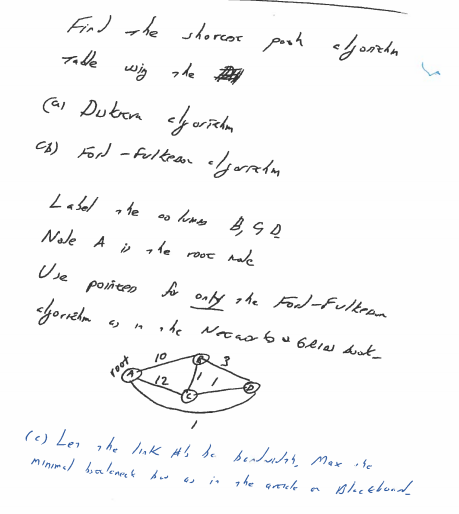 Find the shortest path algorithm
Table using the
(a) Dijkstra algorithm
(b) Ford-Fulkerson algorithm
Label the columns B, C, D
Node A is the root node
Use pointers for only the Ford-Fulkerson
algorithm as in the Networks book
root A 10 B 3 12 1 1 C D 1
(c) Let the link #s be bandwidth. Max the
minimal bottleneck as in the article on Blackboard